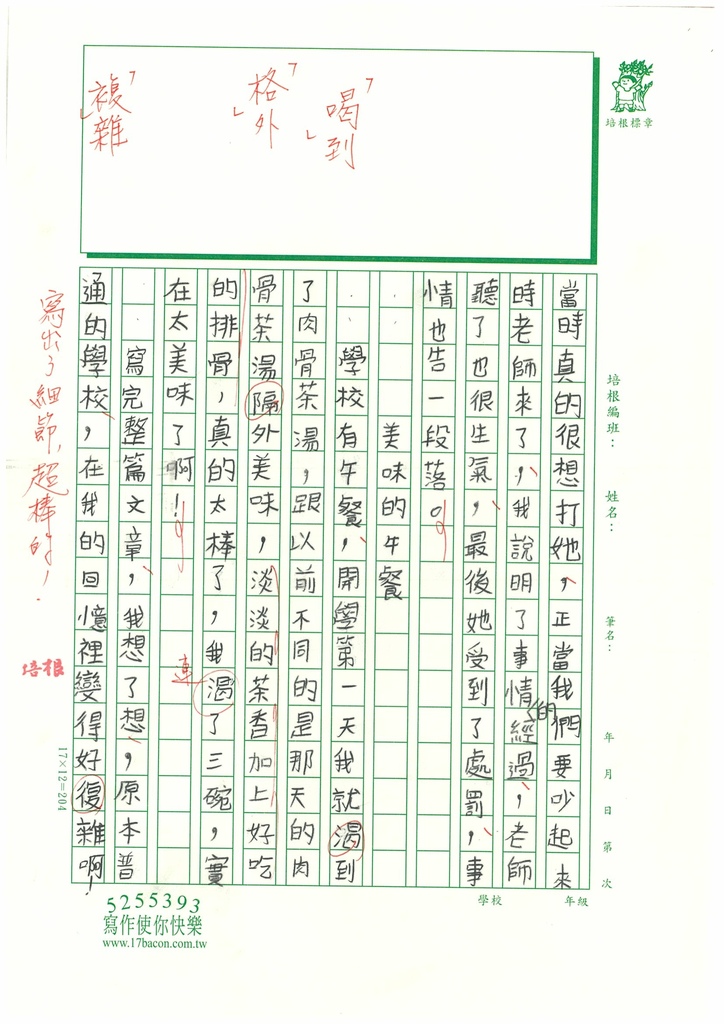 複雜
格外
喝到
培根標章
培根編班：
姓名：
筆名：
年 月 日 第 次
年級
學校
當時真的很想打她，正當我們要吵起來
時老師來了，我說明了事情的經過，老師
聽了也很生氣，最後她受到了處罰，事
情也告一段落。
美味的午餐
學校有午餐，開學第一天我就渴到
了肉骨茶湯，跟以前不同的是那天的肉
骨茶湯隔外美味，淡淡的茶香加上好吃
的排骨，真的太棒了，我渴了三碗，實
連
在太美味了啊！
寫完整篇文章，我想了想，原本普
通的學校，在我的回憶裡變得好復雜啊！
寫出了細節，超棒的！
培根
17×12=204
5255393
寫作使你快樂
www.17bacon.com.tw